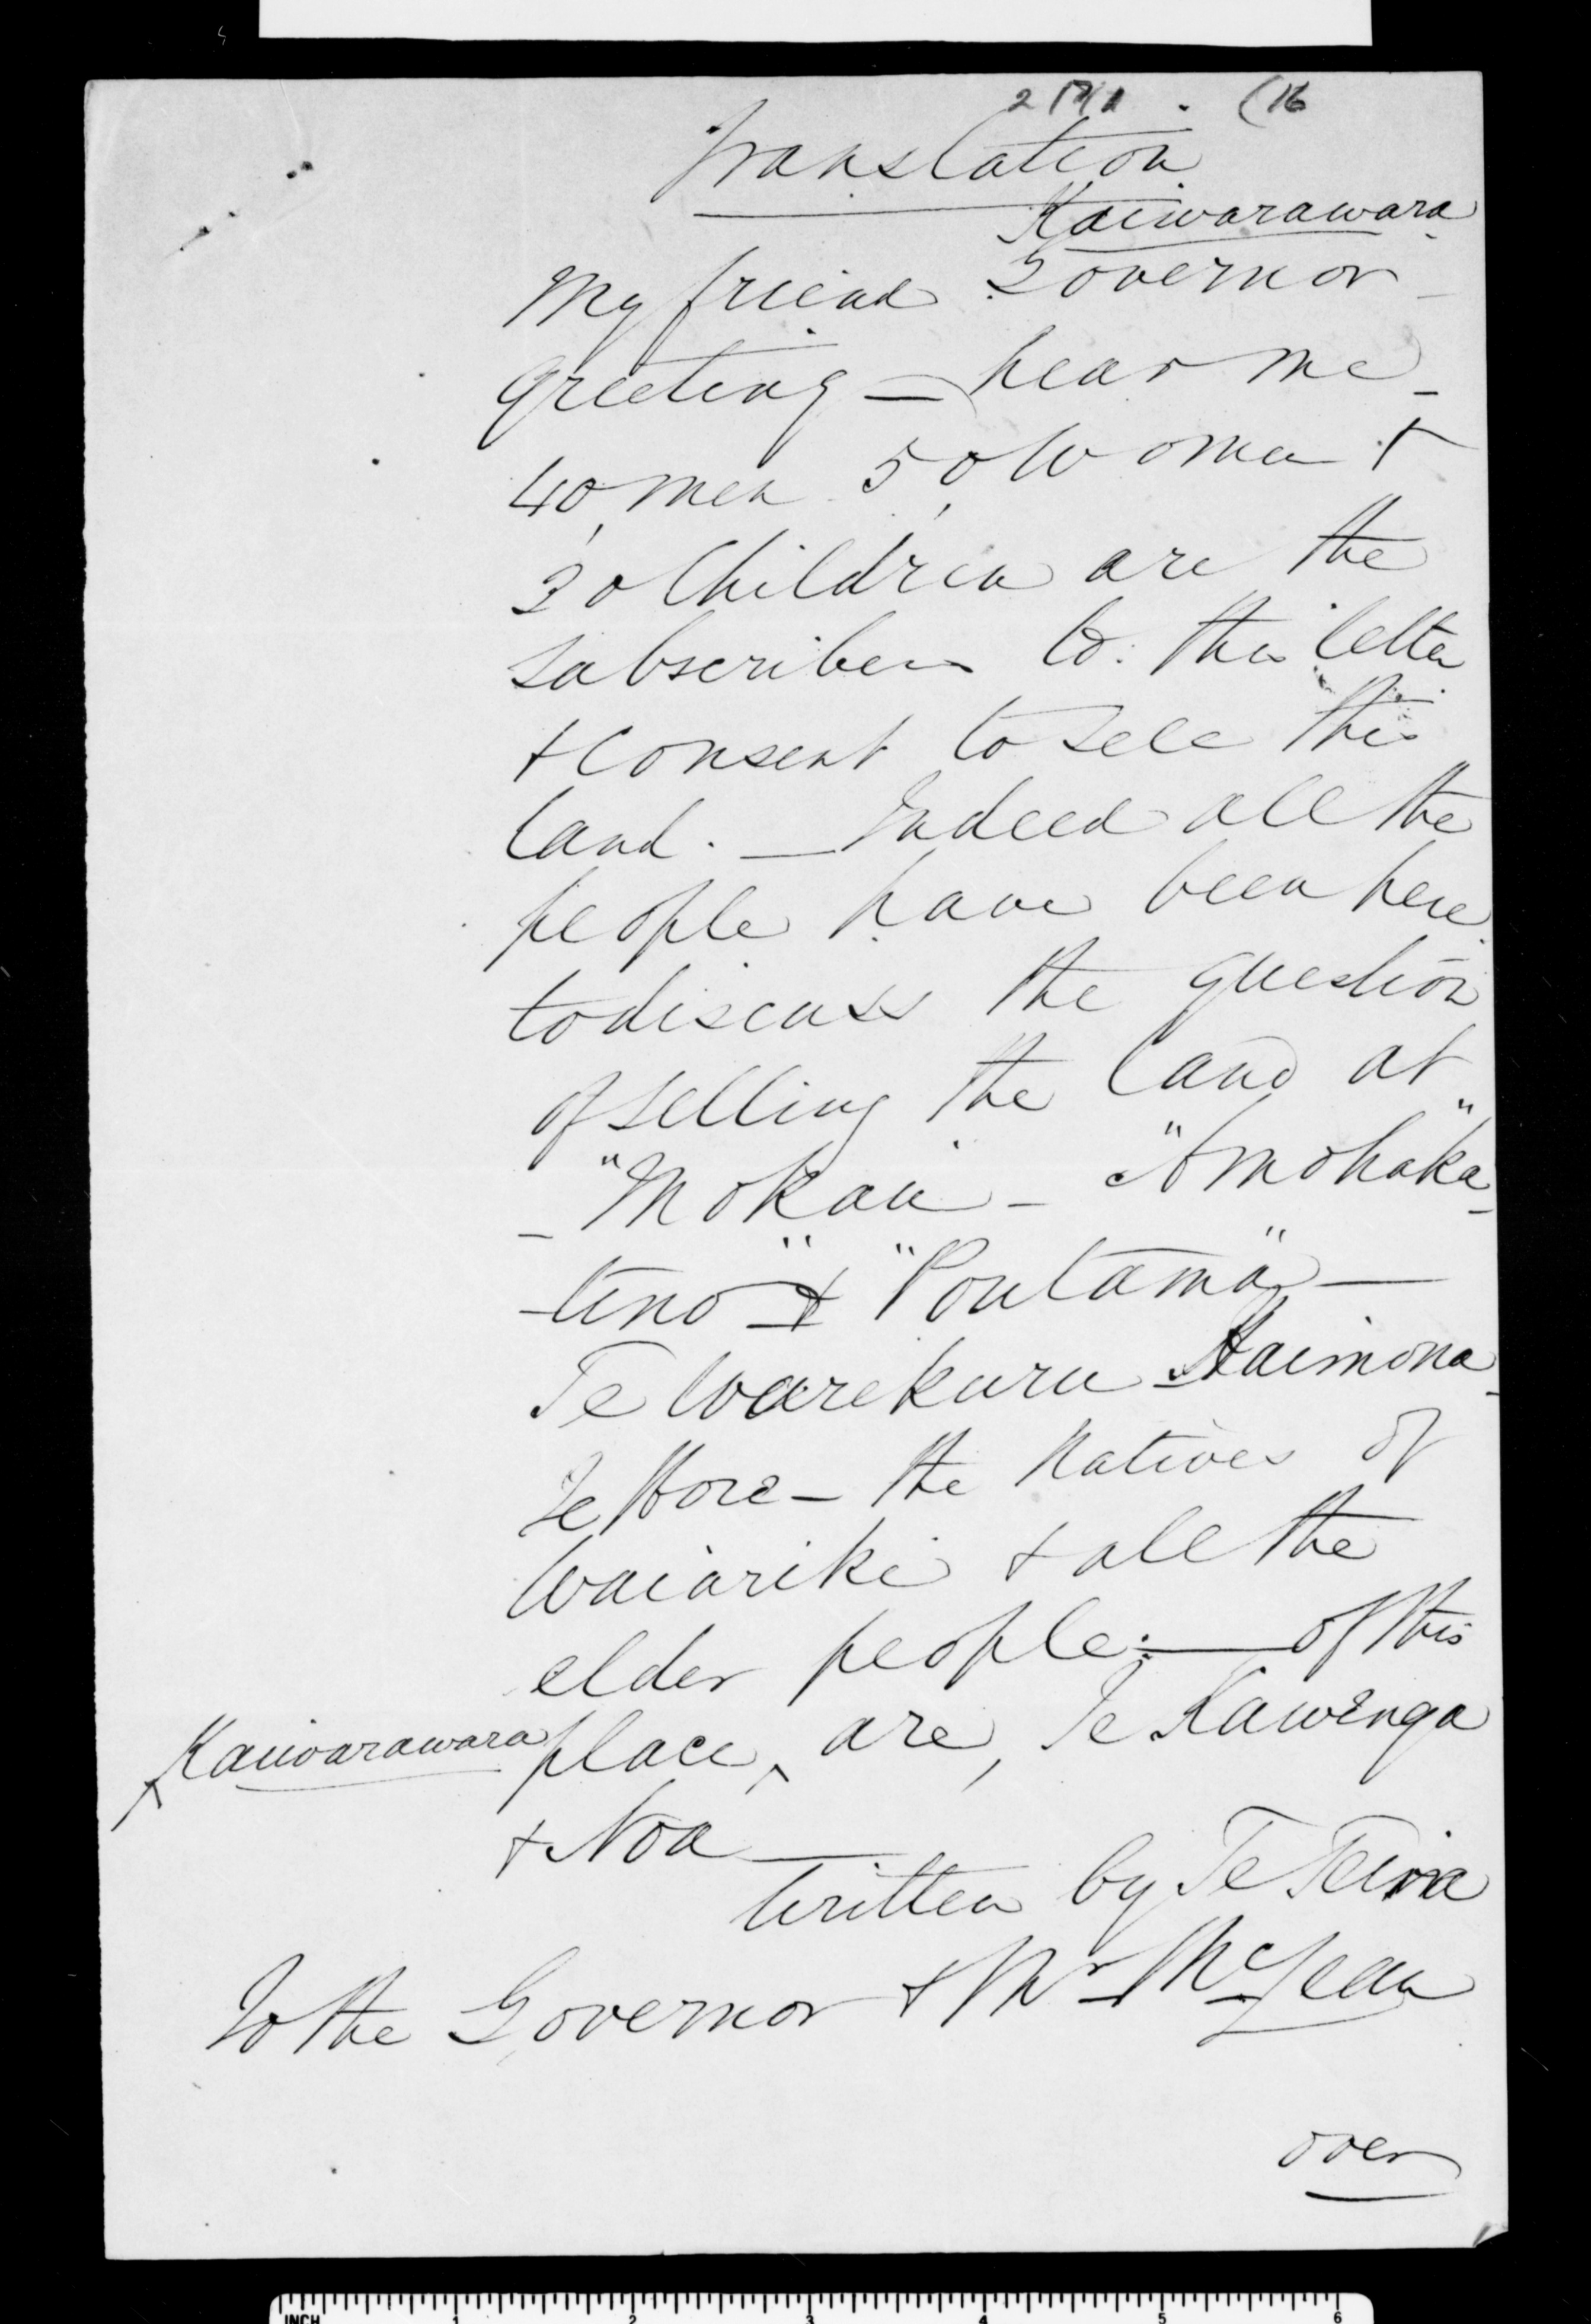 (16
Translation
Kaiwarawara
My friend Governor -
greeting - hear me -
40, men 50, Women &
30 Children are the
subscribers to this letter
& consent to sell this
land. - Indeed all the
people have been here
to discuss the question
of selling the land at
- "Mokau" - "Amohaka-
-tino" & "Poutama" -
Te Warekuru Haimona -
Te Hore - the Natives of
Waiariki & all the
elder people. - of this
Kaiwarawara place, are, Te Kawenga
& Noa -
Written by Te Teira
To the Governor & Mr McLean
over
INCH 1 2 3 4 5 6